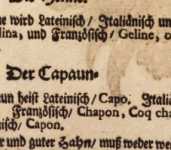 wird Lateinisch/ Italiänisch un
lina, und Französisch/ Geline, o
Der Capaun.
un heist Lateinisch/ Capo, Itali
Französisch/ Chapon, Coq cha
isch/ Capon.
r und guter Hahn/ muß weder we